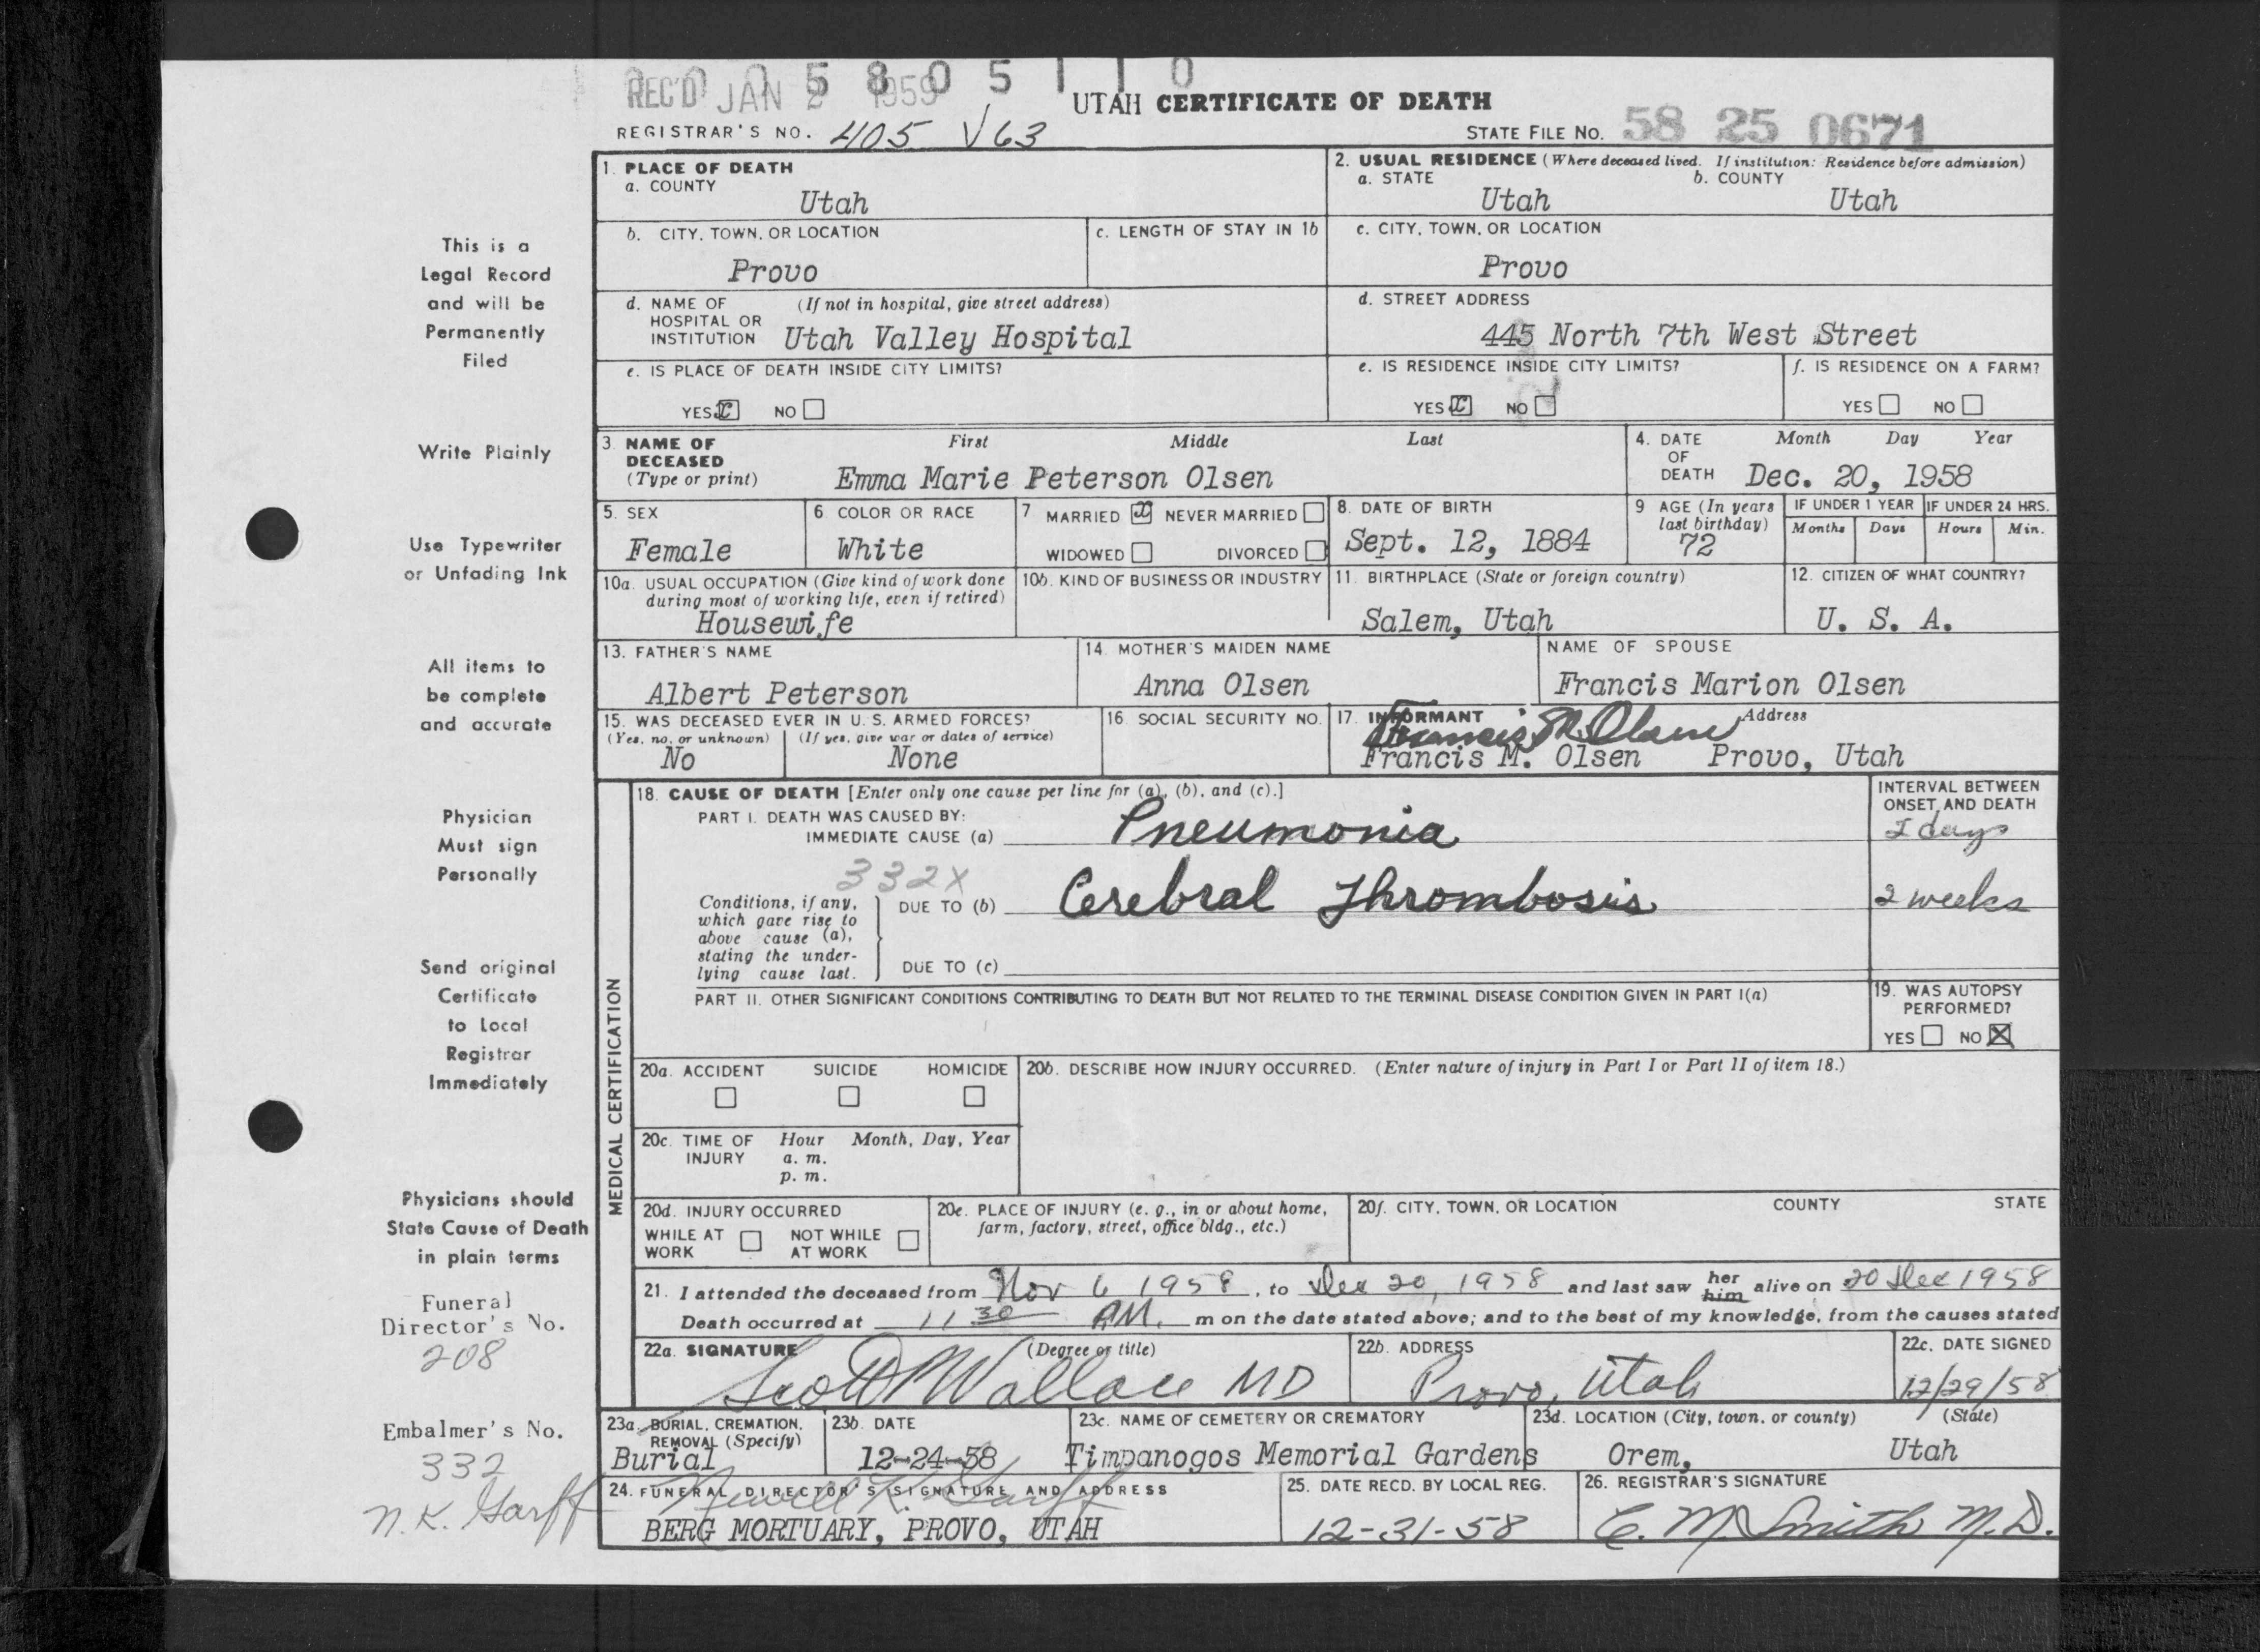 0 0 5 8 0 5 1 1 0
REC'D JAN 2 1959
UTAH CERTIFICATE OF DEATH
REGISTRAR'S NO. 405 V63
STATE FILE NO. 58 25 0671
1. PLACE OF DEATH
a. COUNTY
Utah
2. USUAL RESIDENCE (Where deceased lived. If institution: Residence before admission)
a. STATE b. COUNTY
Utah Utah
b. CITY, TOWN, OR LOCATION
Provo
c. LENGTH OF STAY IN 1b
c. CITY, TOWN, OR LOCATION
Provo
d. NAME OF HOSPITAL OR INSTITUTION (If not in hospital, give street address)
Utah Valley Hospital
d. STREET ADDRESS
445 North 7th West Street
e. IS PLACE OF DEATH INSIDE CITY LIMITS?
YES x NO
e. IS RESIDENCE INSIDE CITY LIMITS?
YES x NO
f. IS RESIDENCE ON A FARM?
YES NO
3. NAME OF DECEASED (Type or print)
First Middle Last
Emma Marie Peterson Olsen
4. DATE OF DEATH Month Day Year
Dec. 20, 1958
5. SEX
Female
6. COLOR OR RACE
White
7 MARRIED x NEVER MARRIED
WIDOWED DIVORCED
8. DATE OF BIRTH
Sept. 12, 1884
9 AGE (In years last birthday)
72
IF UNDER 1 YEAR IF UNDER 24 HRS.
Months Days Hours Min.
10a. USUAL OCCUPATION (Give kind of work done during most of working life, even if retired)
Housewife
10b. KIND OF BUSINESS OR INDUSTRY
11. BIRTHPLACE (State or foreign country)
Salem, Utah
12. CITIZEN OF WHAT COUNTRY?
U. S. A.
13. FATHER'S NAME
Albert Peterson
14. MOTHER'S MAIDEN NAME
Anna Olsen
NAME OF SPOUSE
Francis Marion Olsen
15. WAS DECEASED EVER IN U. S. ARMED FORCES?
(Yes, no, or unknown) (If yes, give war or dates of service)
No None
16. SOCIAL SECURITY NO.
17. INFORMANT Address
Francis M. Olsen
Francis M. Olsen Provo, Utah
MEDICAL CERTIFICATION
18. CAUSE OF DEATH [Enter only one cause per line for (a), (b), and (c).]
INTERVAL BETWEEN ONSET AND DEATH
PART I. DEATH WAS CAUSED BY:
IMMEDIATE CAUSE (a) Pneumonia 2 days
332X
Conditions, if any, which gave rise to above cause (a), stating the underlying cause last.
DUE TO (b) Cerebral Thrombosis 2 weeks
DUE TO (c)
PART II. OTHER SIGNIFICANT CONDITIONS CONTRIBUTING TO DEATH BUT NOT RELATED TO THE TERMINAL DISEASE CONDITION GIVEN IN PART I(a)
19. WAS AUTOPSY PERFORMED?
YES NO X
20a. ACCIDENT SUICIDE HOMICIDE
20b. DESCRIBE HOW INJURY OCCURRED. (Enter nature of injury in Part I or Part II of item 18.)
20c. TIME OF INJURY Hour Month, Day, Year
a. m.
p. m.
20d. INJURY OCCURRED
WHILE AT WORK NOT WHILE AT WORK
20e. PLACE OF INJURY (e. g., in or about home, farm, factory, street, office bldg., etc.)
20f. CITY, TOWN, OR LOCATION COUNTY STATE
21. I attended the deceased from Nov 6 1958, to Dec 20, 1958 and last saw her him alive on 20 Dec 1958
Death occurred at 11 30 AM. m on the date stated above; and to the best of my knowledge, from the causes stated
22a. SIGNATURE (Degree or title)
Scott M Wallace MD
22b. ADDRESS
Provo, Utah
22c. DATE SIGNED
12/29/58
23a. BURIAL, CREMATION, REMOVAL (Specify)
Burial
23b. DATE
12-24-58
23c. NAME OF CEMETERY OR CREMATORY
Timpanogos Memorial Gardens
23d. LOCATION (City, town, or county) (State)
Orem, Utah
24. FUNERAL DIRECTOR'S SIGNATURE AND ADDRESS
Newell K. Garff
BERG MORTUARY, PROVO, UTAH
25. DATE RECD. BY LOCAL REG.
12-31-58
26. REGISTRAR'S SIGNATURE
C. M. Smith M.D.
This is a
Legal Record
and will be
Permanently
Filed
Write Plainly
Use Typewriter
or Unfading Ink
All items to
be complete
and accurate
Physician
Must sign
Personally
Send original
Certificate
to Local
Registrar
Immediately
Physicians should
State Cause of Death
in plain terms
Funeral
Director's No.
208
Embalmer's No.
332
N. K. Garff